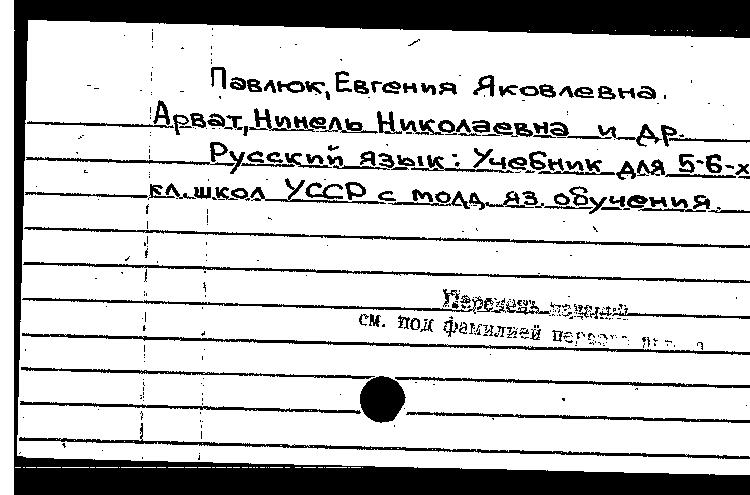 Павлюк, Евгения Яковлевна.
Арват, Нинель Николаевна и др.
Русский язык: Учебник для 5-6-х
кл. школ УССР с молд. яз. обучения.
Перечень изданий
см. под фамилией первого